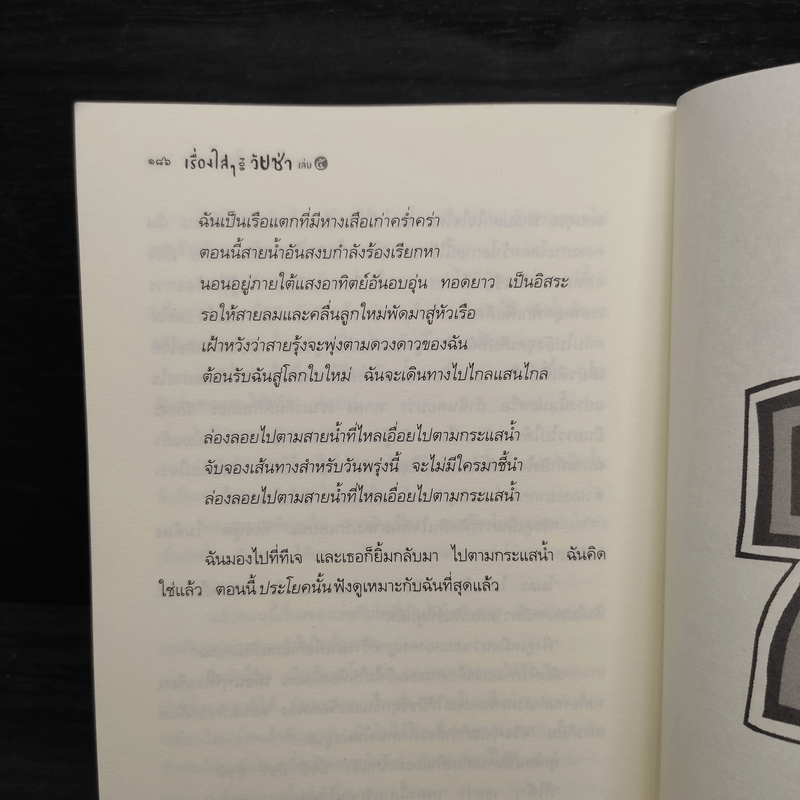 ๑๘๖ เรื่องใสๆ ของ วัยซ่า เล่ม ๕
ฉันเป็นเรือแตกที่มีหางเสือเก่าคร่ำคร่า
ตอนนี้สายน้ำอันสงบกำลังร้องเรียกหา
นอนอยู่ภายใต้แสงอาทิตย์อันอบอุ่น ทอดยาว เป็นอิสระ
รอให้สายลมและคลื่นลูกใหม่พัดมาสู่หัวเรือ
เฝ้าหวังว่าสายรุ้งจะพุ่งตามดวงดาวของฉัน
ต้อนรับฉันสู่โลกใบใหม่ ฉันจะเดินทางไปไกลแสนไกล
ล่องลอยไปตามสายน้ำที่ไหลเอื่อยไปตามกระแสน้ำ
จับจองเส้นทางสำหรับวันพรุ่งนี้ จะไม่มีใครมาชี้นำ
ล่องลอยไปตามสายน้ำที่ไหลเอื่อยไปตามกระแสน้ำ
ฉันมองไปที่ทีเจ และเธอก็ยิ้มกลับมา ไปตามกระแสน้ำ ฉันคิด
ใช่แล้ว ตอนนี้ ประโยคนั้น ฟังดูเหมาะกับฉันที่สุดแล้ว